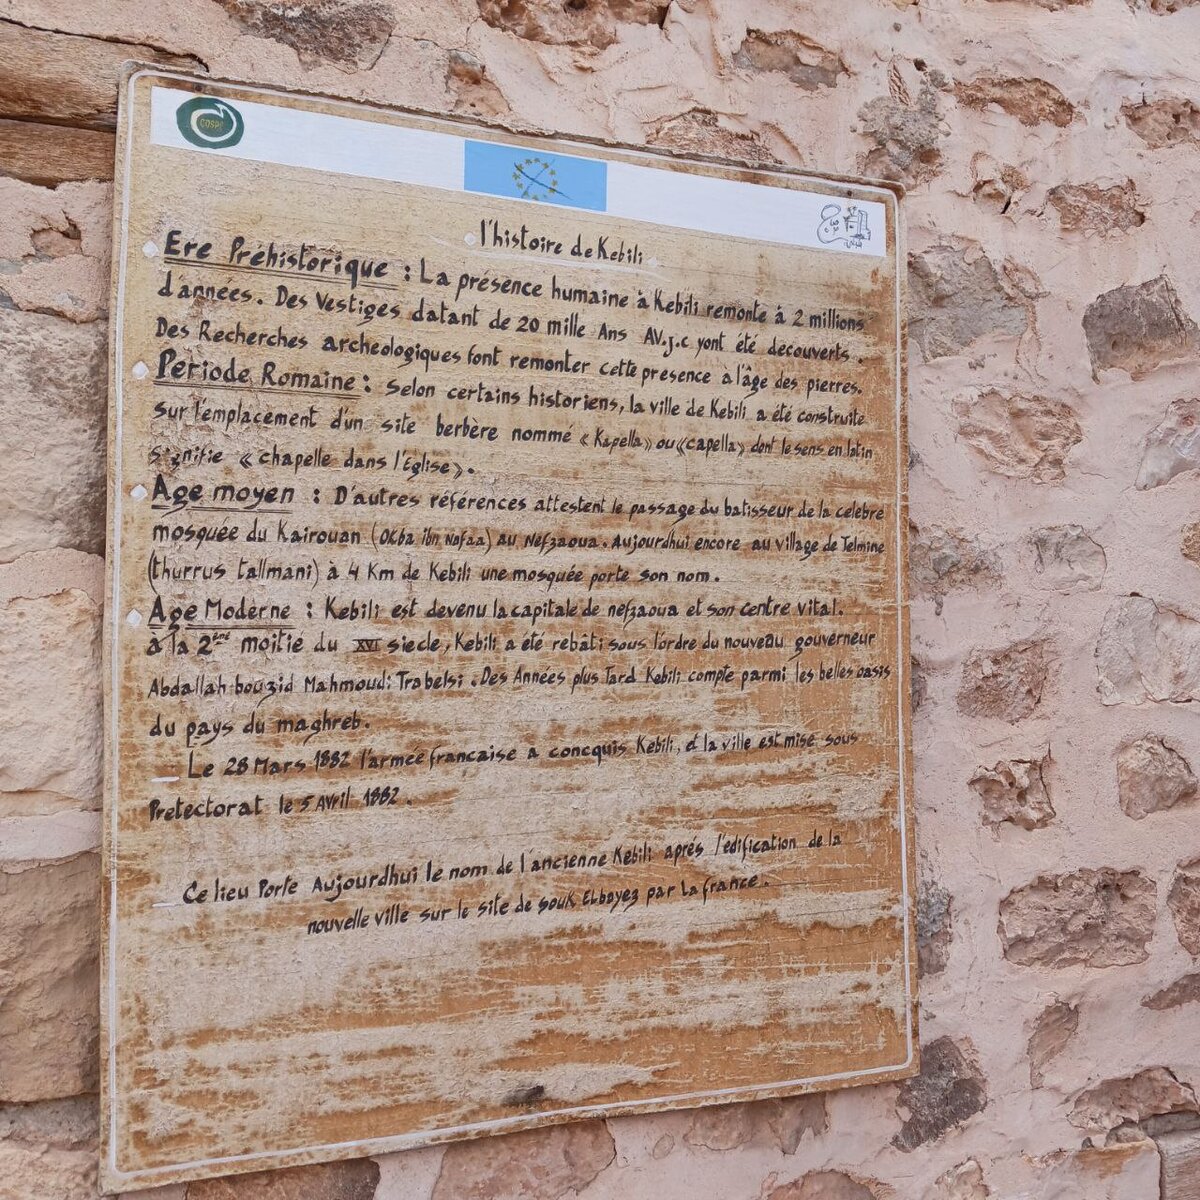 COSPE
l'histoire de Kebili
Ere Préhistorique : La présence humaine à Kebili remonte à 2 millions
d'années. Des Vestiges datant de 20 mille Ans AV.j.c yont été decouverts.
Des Recherches archeologiques font remonter cette presence à l'âge des pierres.
Periode Romaine : Selon certains historiens, la ville de Kebili a été construite
sur l'emplacement d'un site berbère nommé « Kapella » ou « capella » dont le sens en latin
signifie « chapelle dans l'Église ».
Age moyen : D'autres références attestent le passage du batisseur de la celebre
mosquee du Kairouan (Okba ibn Nafaa) au Nefzaoua. Aujourdhui encore au village de Telmine
(thurrus tallmani) à 4 Km de Kebili une mosquée porte son nom.
Age Moderne : Kebili est devenu la capitale de nefzaoua et son centre vital.
à la 2ème moitié du XVI siecle, Kebili a été rebâti sous l'ordre du nouveau gouverneur
Abdallah bouzid Mahmoudi Trabelsi. Des Années plus Tard Kebili compte parmi les belles oasis
du pays du maghreb.
Le 28 Mars 1882 l'armée francaise a concquis Kebili, et la ville est mise sous
Pretectorat le 5 Avril 1882.
Ce lieu Porte Aujourdhui le nom de l'ancienne Kebili aprés l'édification de la
nouvelle ville sur le site de souk ELbayez par La france.